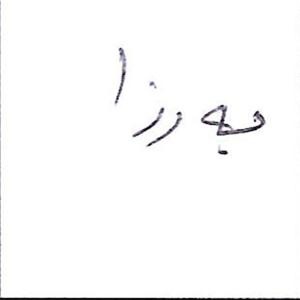 به رزا